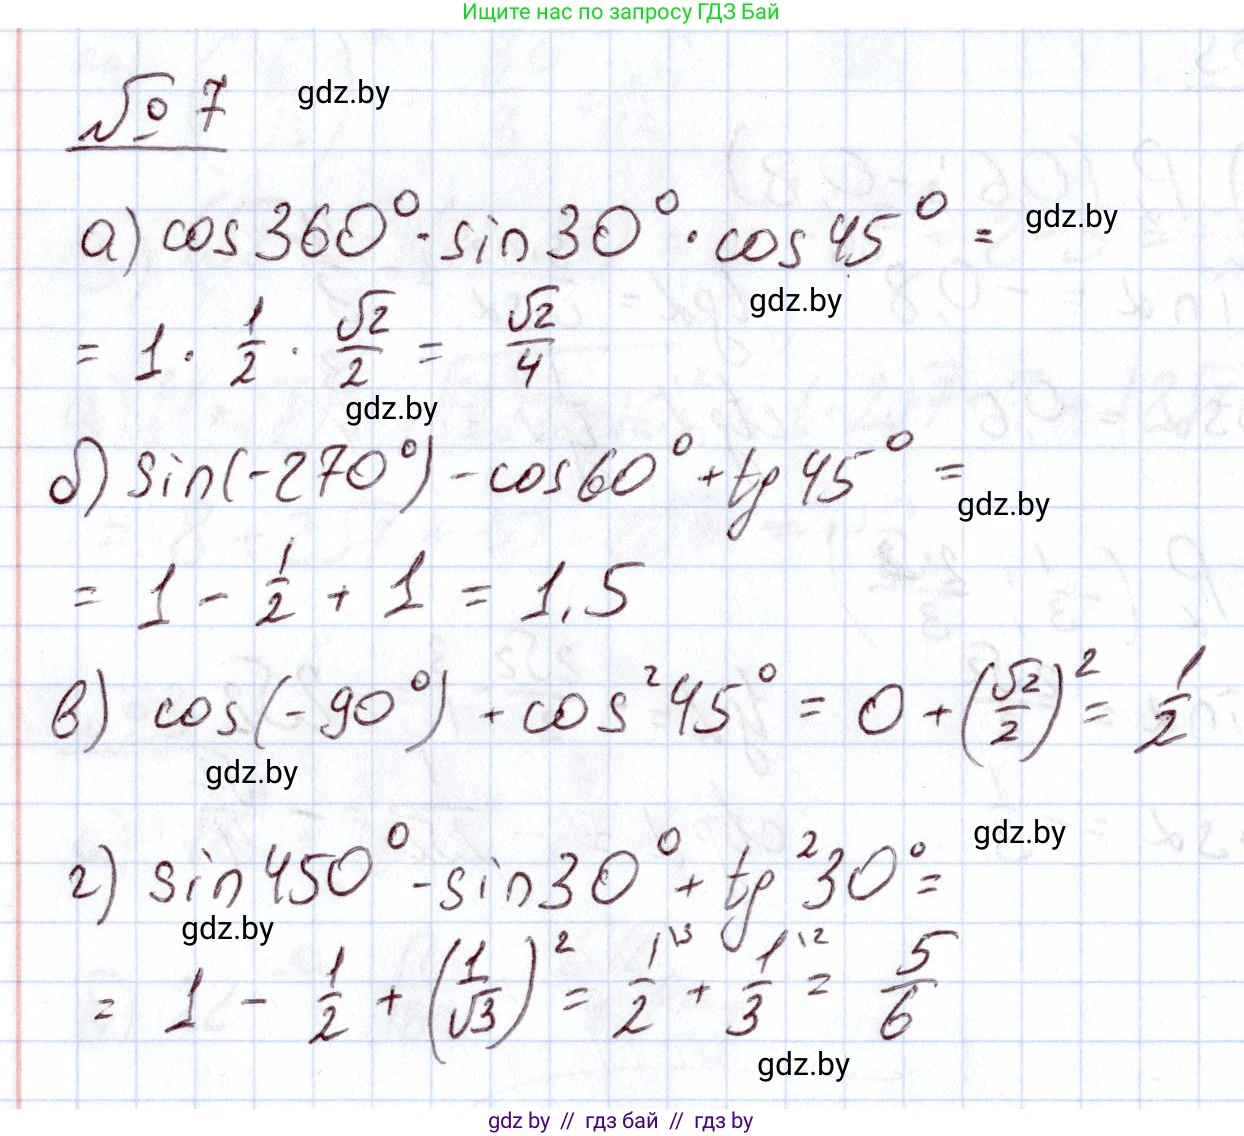 Ищите нас по запросу ГДЗ Бай
№ 7 gdz.by
а) cos 360° · sin 30° · cos 45° = gdz.by
gdz.by
= 1 · 1/2 · √2/2 = √2/4
gdz.by
б) sin(-270°) - cos 60° + tg 45° =
gdz.by
= 1 - 1/2 + 1 = 1,5
в) cos(-90°) + cos² 45° = 0 + (√2/2)² = 1/2
gdz.by
gdz.by
г) sin 450° - sin 30° + tg² 30° =
gdz.by
= 1 - 1/2 + (1/√3)² = 1/2 \3 + 1/3 \2 = 5/6
gdz.by
gdz by // гдз бай // гдз by